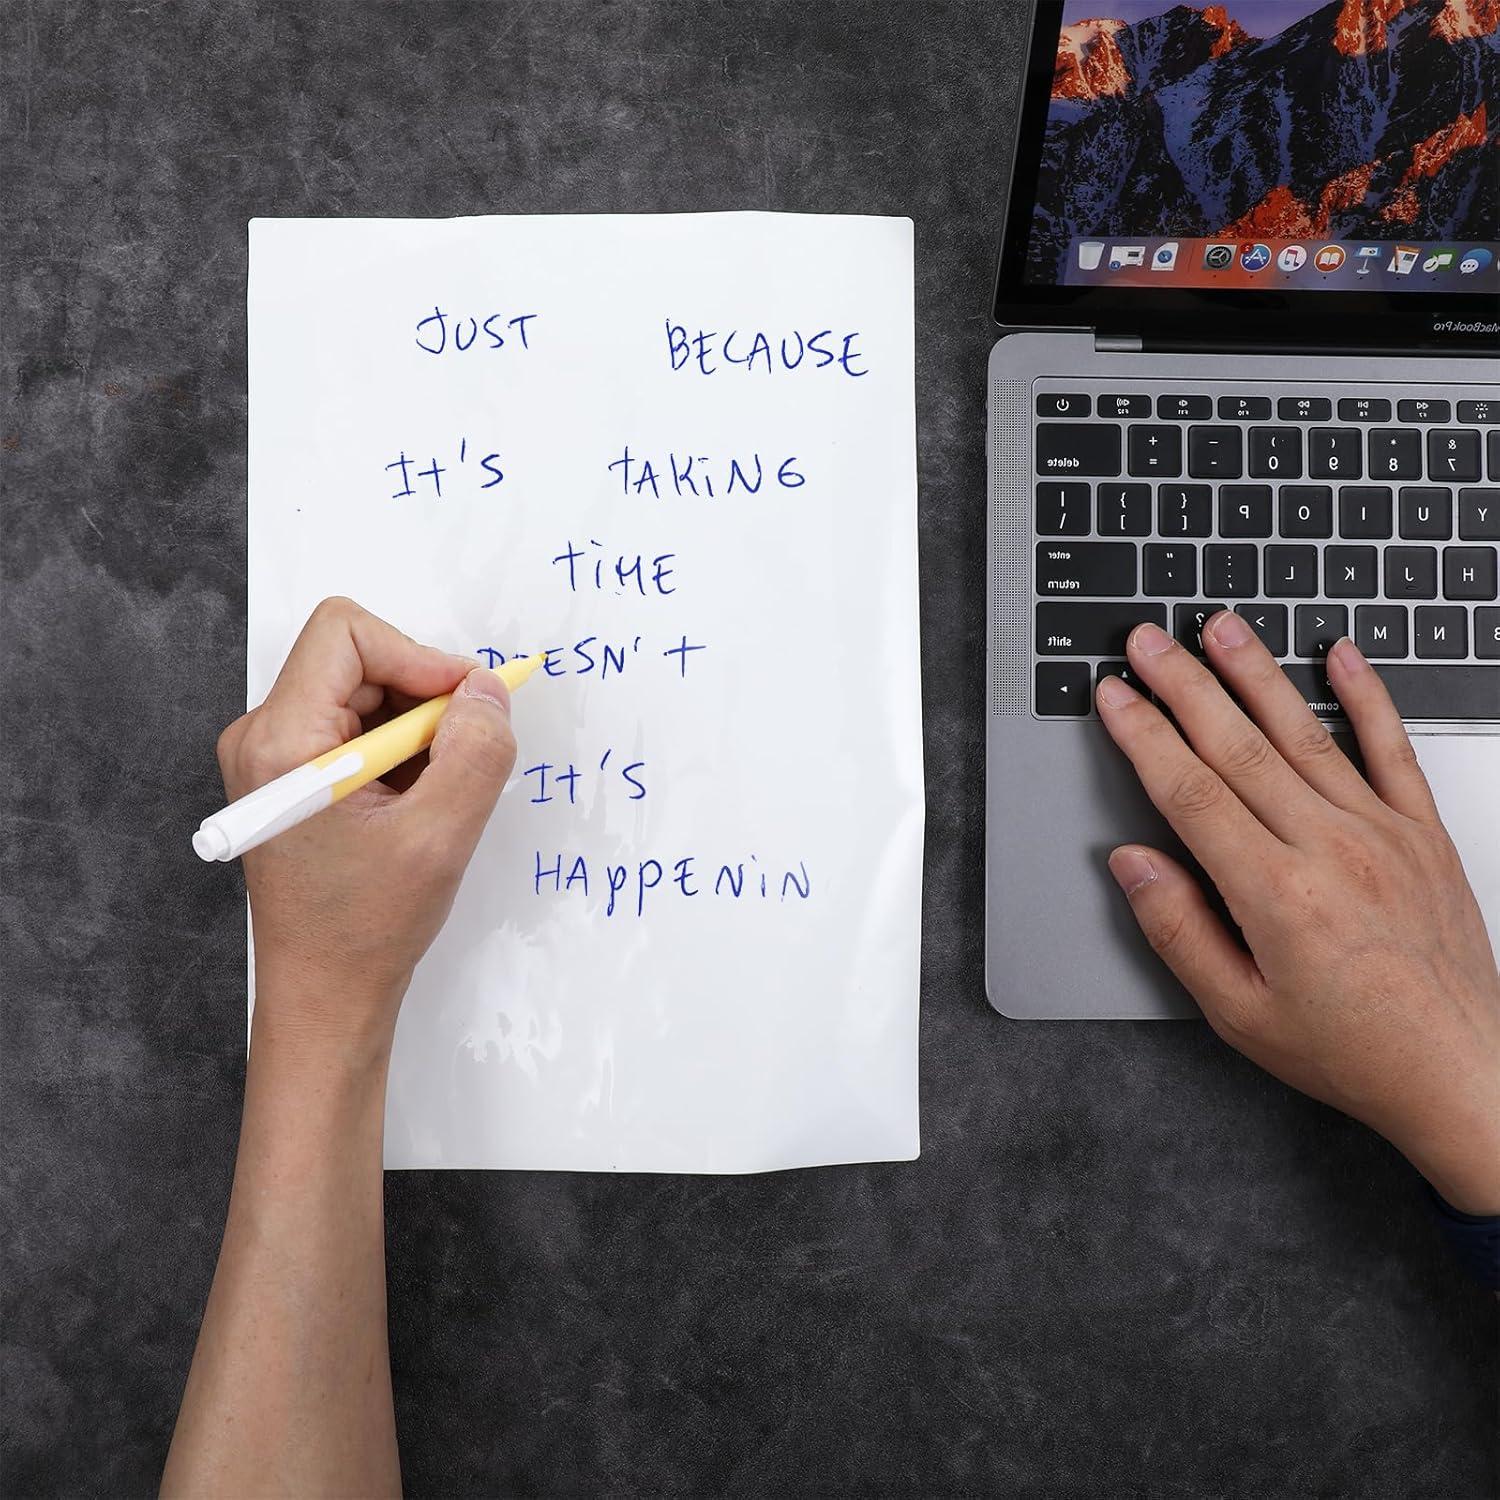 JUST BECAUSE
It's tAKiNG
tiME
DOESN't
It's
HAppENiN
MacBook Pro
delete
enter
return
shift